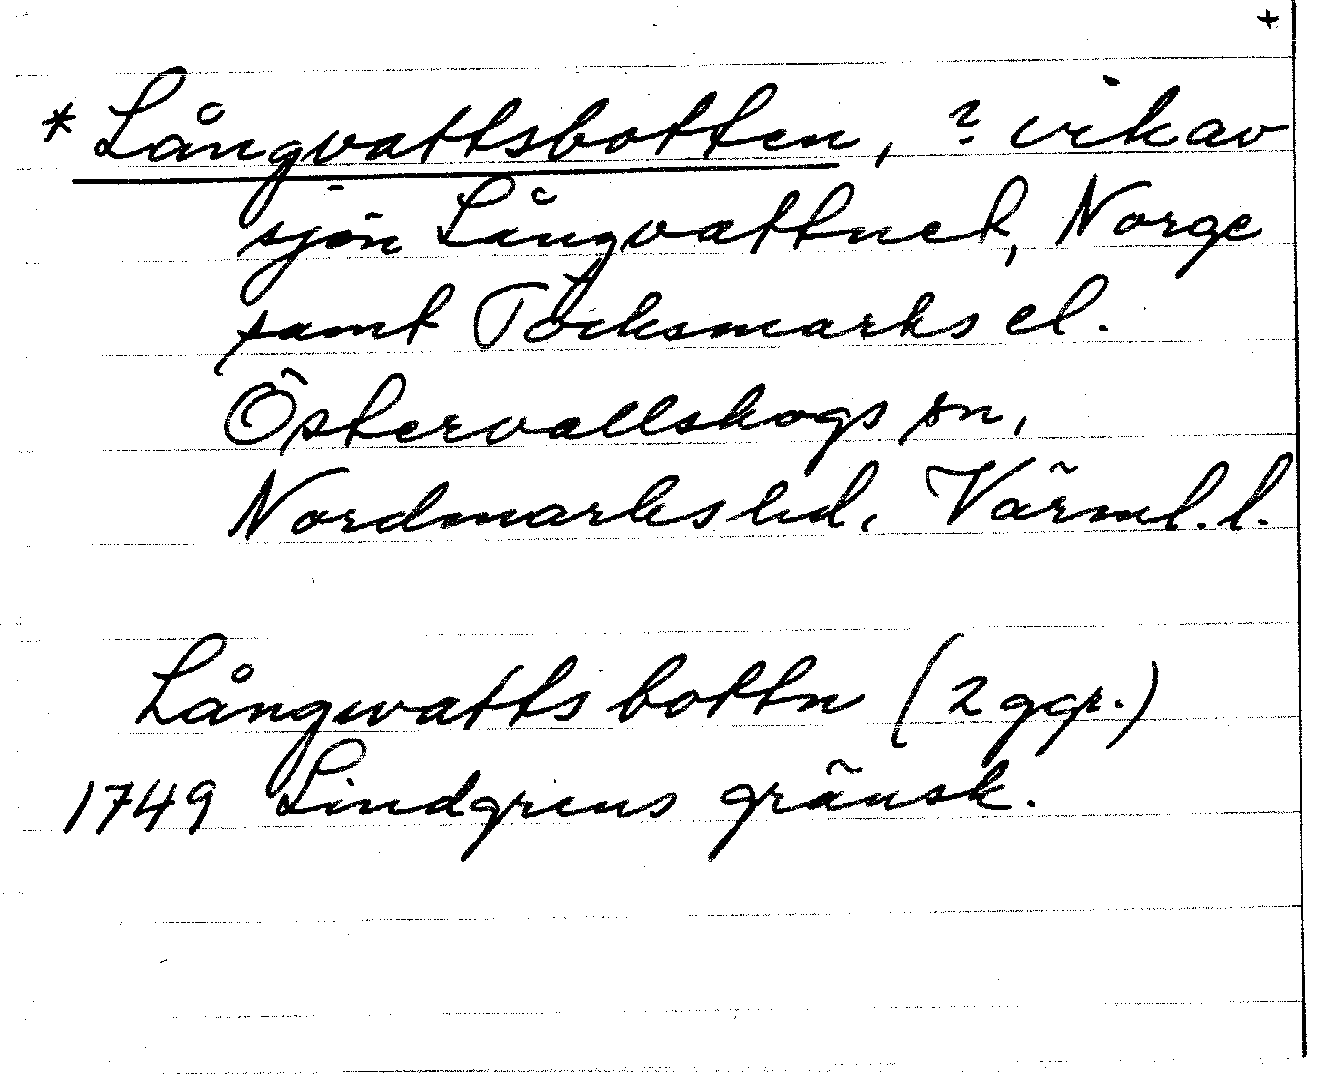 +
* Långvattsbotten, ? vik av
sjön Långvattnet, Norge
samt Töcksmarks el.
Östervallskogs sn,
Nordmarks hd, Värml. l.
Långwatts bottn (2 ggr.)
1749 Lindgrens gränsk.